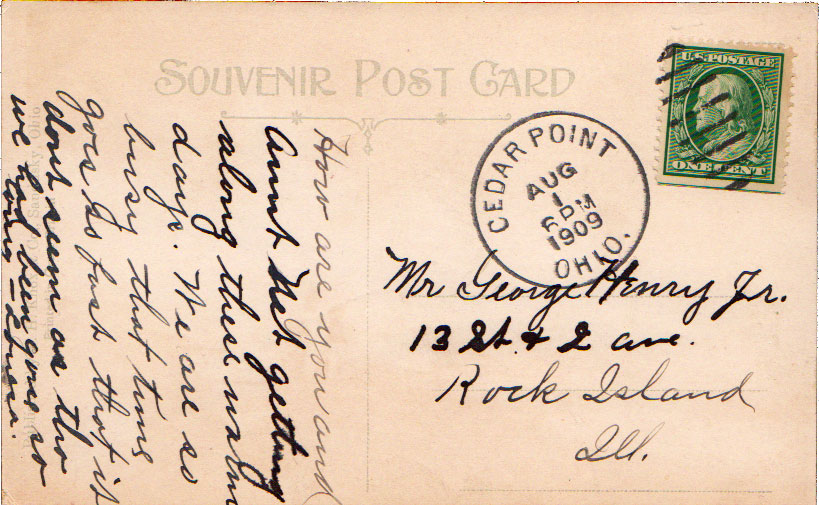 SOUVENIR POST CARD
U.S. POSTAGE
ONE CENT
CEDAR POINT
AUG
1
6 PM
1909
OHIO.
Mr George Henry Jr.
13 St. & 2 ave.
Rock Island
Ill.
How are you and
Aunt Net getting
along these warm
days. We are so
busy that time
goes so fast that it
dont seem as tho
we had been gone so
long - Louisa.
Sandusky, Ohio